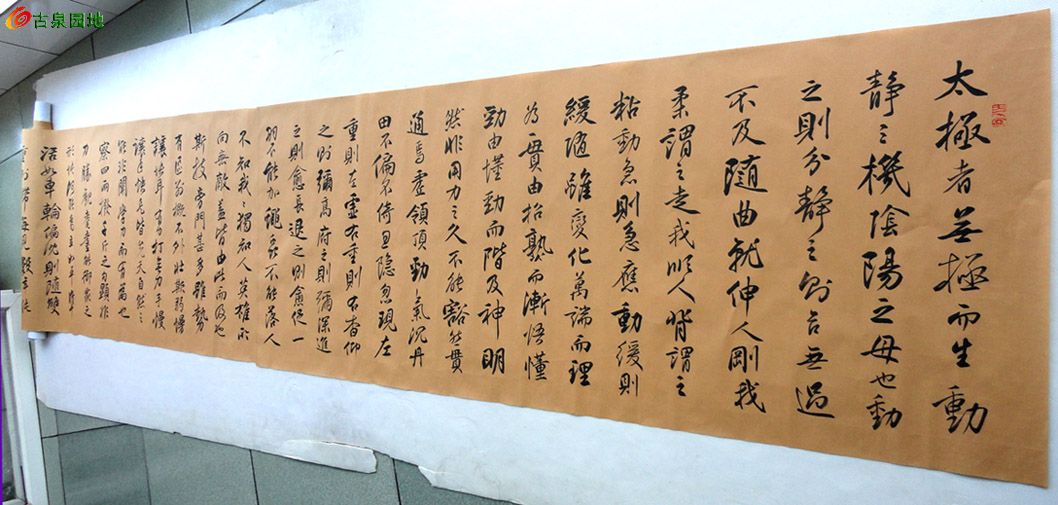 古泉园地
太極者無極而生動
静之機陰陽之母也動
之則分静之則合無過
不及隨曲就伸人剛我
柔謂之走我順人背謂之
粘動急則急應動緩則
緩隨雖變化萬端而理
為一貫由招熟而漸悟懂
勁由懂勁而階及神明
然非用力之久不能豁然貫
通焉虚領頂勁氣沉丹
田不偏不倚忽隐忽現左
重則左虚右重則右杳仰
之則彌高府之則彌深進
之則愈長退之則愈促一
羽不能加蠅虫不能落人
不知我我獨知人英雄所
向無敵蓋皆由此而及也
斯技旁門甚多雖勢
有區别概不外壮欺弱慢
讓快耳有力打無力手慢
讓手快是皆先天自然之
能非關學力而有為也
察四两撥千斤之句顯非
力勝觀耄耋能御衆之
形快何能為立如平準
活如車輪偏沉則隨雙
重則滯每見數年純